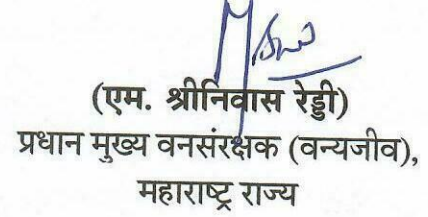 (एम. श्रीनिवास रेड्डी)
प्रधान मुख्य वनसंरक्षक (वन्यजीव),
महाराष्ट्र राज्य